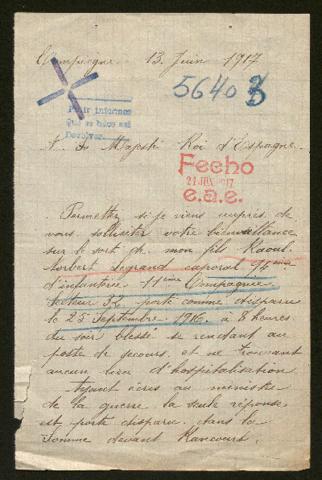 Compiègne 13 Juin 1917
56403
Pour informer
que se hace así
Devolver
A Sa Majesté Roi d'Espagne
Fecho
21 JUN 1917
e.a.e.
Permettez si je viens auprès de
vous solliciter votre bienveillance
sur le sort de mon fils Raoul
Norbert Legrand caporal 94ième
d'infanterie 11ème Compagnie
secteur 32 porté comme disparu
le 25 Septembre 1916 à 8 heures
du soir blessé se rendant au
poste de secours et ne trouvant
aucun lieu d'hospitalisation
Ayant écris au ministre
de la guerre la seule réponse
est porté disparu dans la
Somme devant Rancourt.